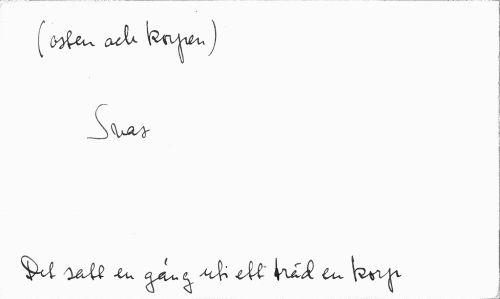 (osten och korpen)
Svas
Det satt en gång uti ett träd en korp